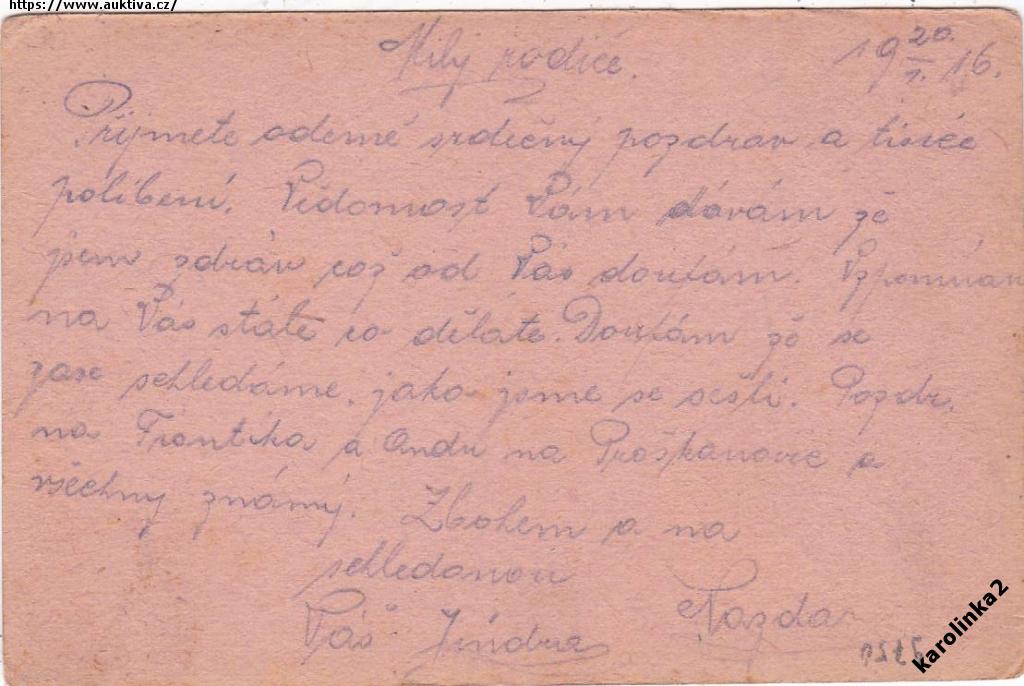 https://www.auktiva.cz/
Milý rodiče. 19 20/1. 16.
Přijmete odemě srdečný pozdrav a tisíce
políbení. Vědomost Vám dávám že
jsem zdráv což od Vás doufám. Vzpomínám
na Vás stále co děláte. Doufám že se
zase schledáme, jako jsme se sešli. Pozdr.
na Frantíka a Andu na Proškanovic a
všechny známý. Zbohem a na
schledanou
Váš Jindra Nazdar
karolinka2